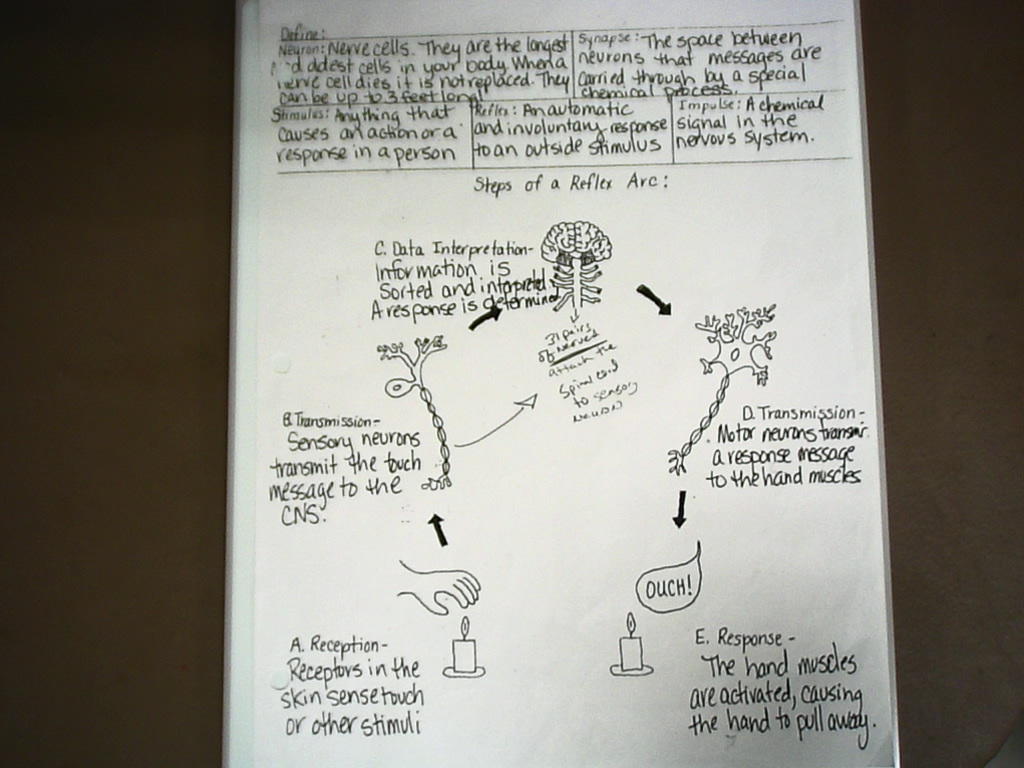 Define:
Neuron: Nerve cells. They are the longest
oldest cells in your body. When a
nerve cell dies it is not replaced. They
can be up to 3 feet long!
Synapse: The space between
neurons that messages are
carried through by a special
chemical process.
Stimulus: Anything that
causes an action or a
response in a person
Reflex: An automatic
and involuntary response
to an outside stimulus
Impulse: A chemical
signal in the
nervous system.
Steps of a Reflex Arc:
C. Data Interpretation-
Information is
Sorted and interpreted.
A response is determined
31 pairs
of nerves
attach the
Spinal cord
to sensory
neurons
B. Transmission-
Sensory neurons
transmit the touch
message to the
CNS.
D. Transmission-
Motor neurons transmit
a response message
to the hand muscles
OUCH!
A. Reception-
Receptors in the
skin sense touch
or other stimuli
E. Response -
The hand muscles
are activated, causing
the hand to pull away.